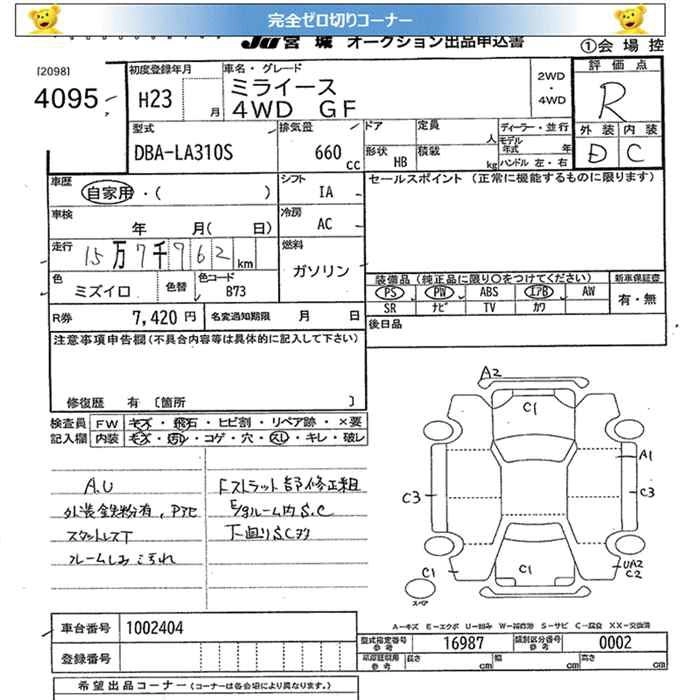 完全ゼロ切りコーナー
JU宮城 オークション出品申込書
①会場控
[2098]
4095
初度登録年月
H23 月
車名・グレード
ミライース
4WD GF
2WD
・
4WD
評価点
R
外装 内装
D C
型式
DBA-LA310S
排気量
660 cc
ドア
形状 HB
定員 人
積載 kg
ディーラー・並行
モデル年式 年
ハンドル 左・右
車歴
自家用・( )
シフト
IA
セールスポイント (正常に機能するものに限ります)
車検
年 月( 日)
冷房
AC
走行
15万7千762km
燃料
ガソリン
色
ミズイロ
色替
色コード
B73
装備品(純正品に限り○をつけてください)
PS PW ABS エアB AW
SR ナビ TV カワ
新車保証書
有・無
R券 7,420円
名変通知期限 月 日
後日品
注意事項申告欄(不具合内容等は具体的に記入して下さい)
修復歴 有〔箇所 〕
検査員 FW キズ・飛石・ヒビ割・リペア跡・×要
記入欄 内装 キズ・汚れ・コゲ・穴・スレ・キレ・破レ
A.U
外装鉄粉有,
スタットレスT
フレームしみ こ汚れ
Fストラット部修正組
E/gルーム内S.C
下回りSC多
A2
C1
A1
C3
C3
C1
C1
UA2
C2
スペア
A―キズ E―エクボ U―凹み W―補修跡 S―サビ C―腐食 XX―交換済
車台番号 1002404
登録番号
型式指定番号 参考 16987
類別区分番号 参考 0002
長さ cm 幅 cm 高さ cm
希望出品コーナー(コーナーは各会場により異なります。)